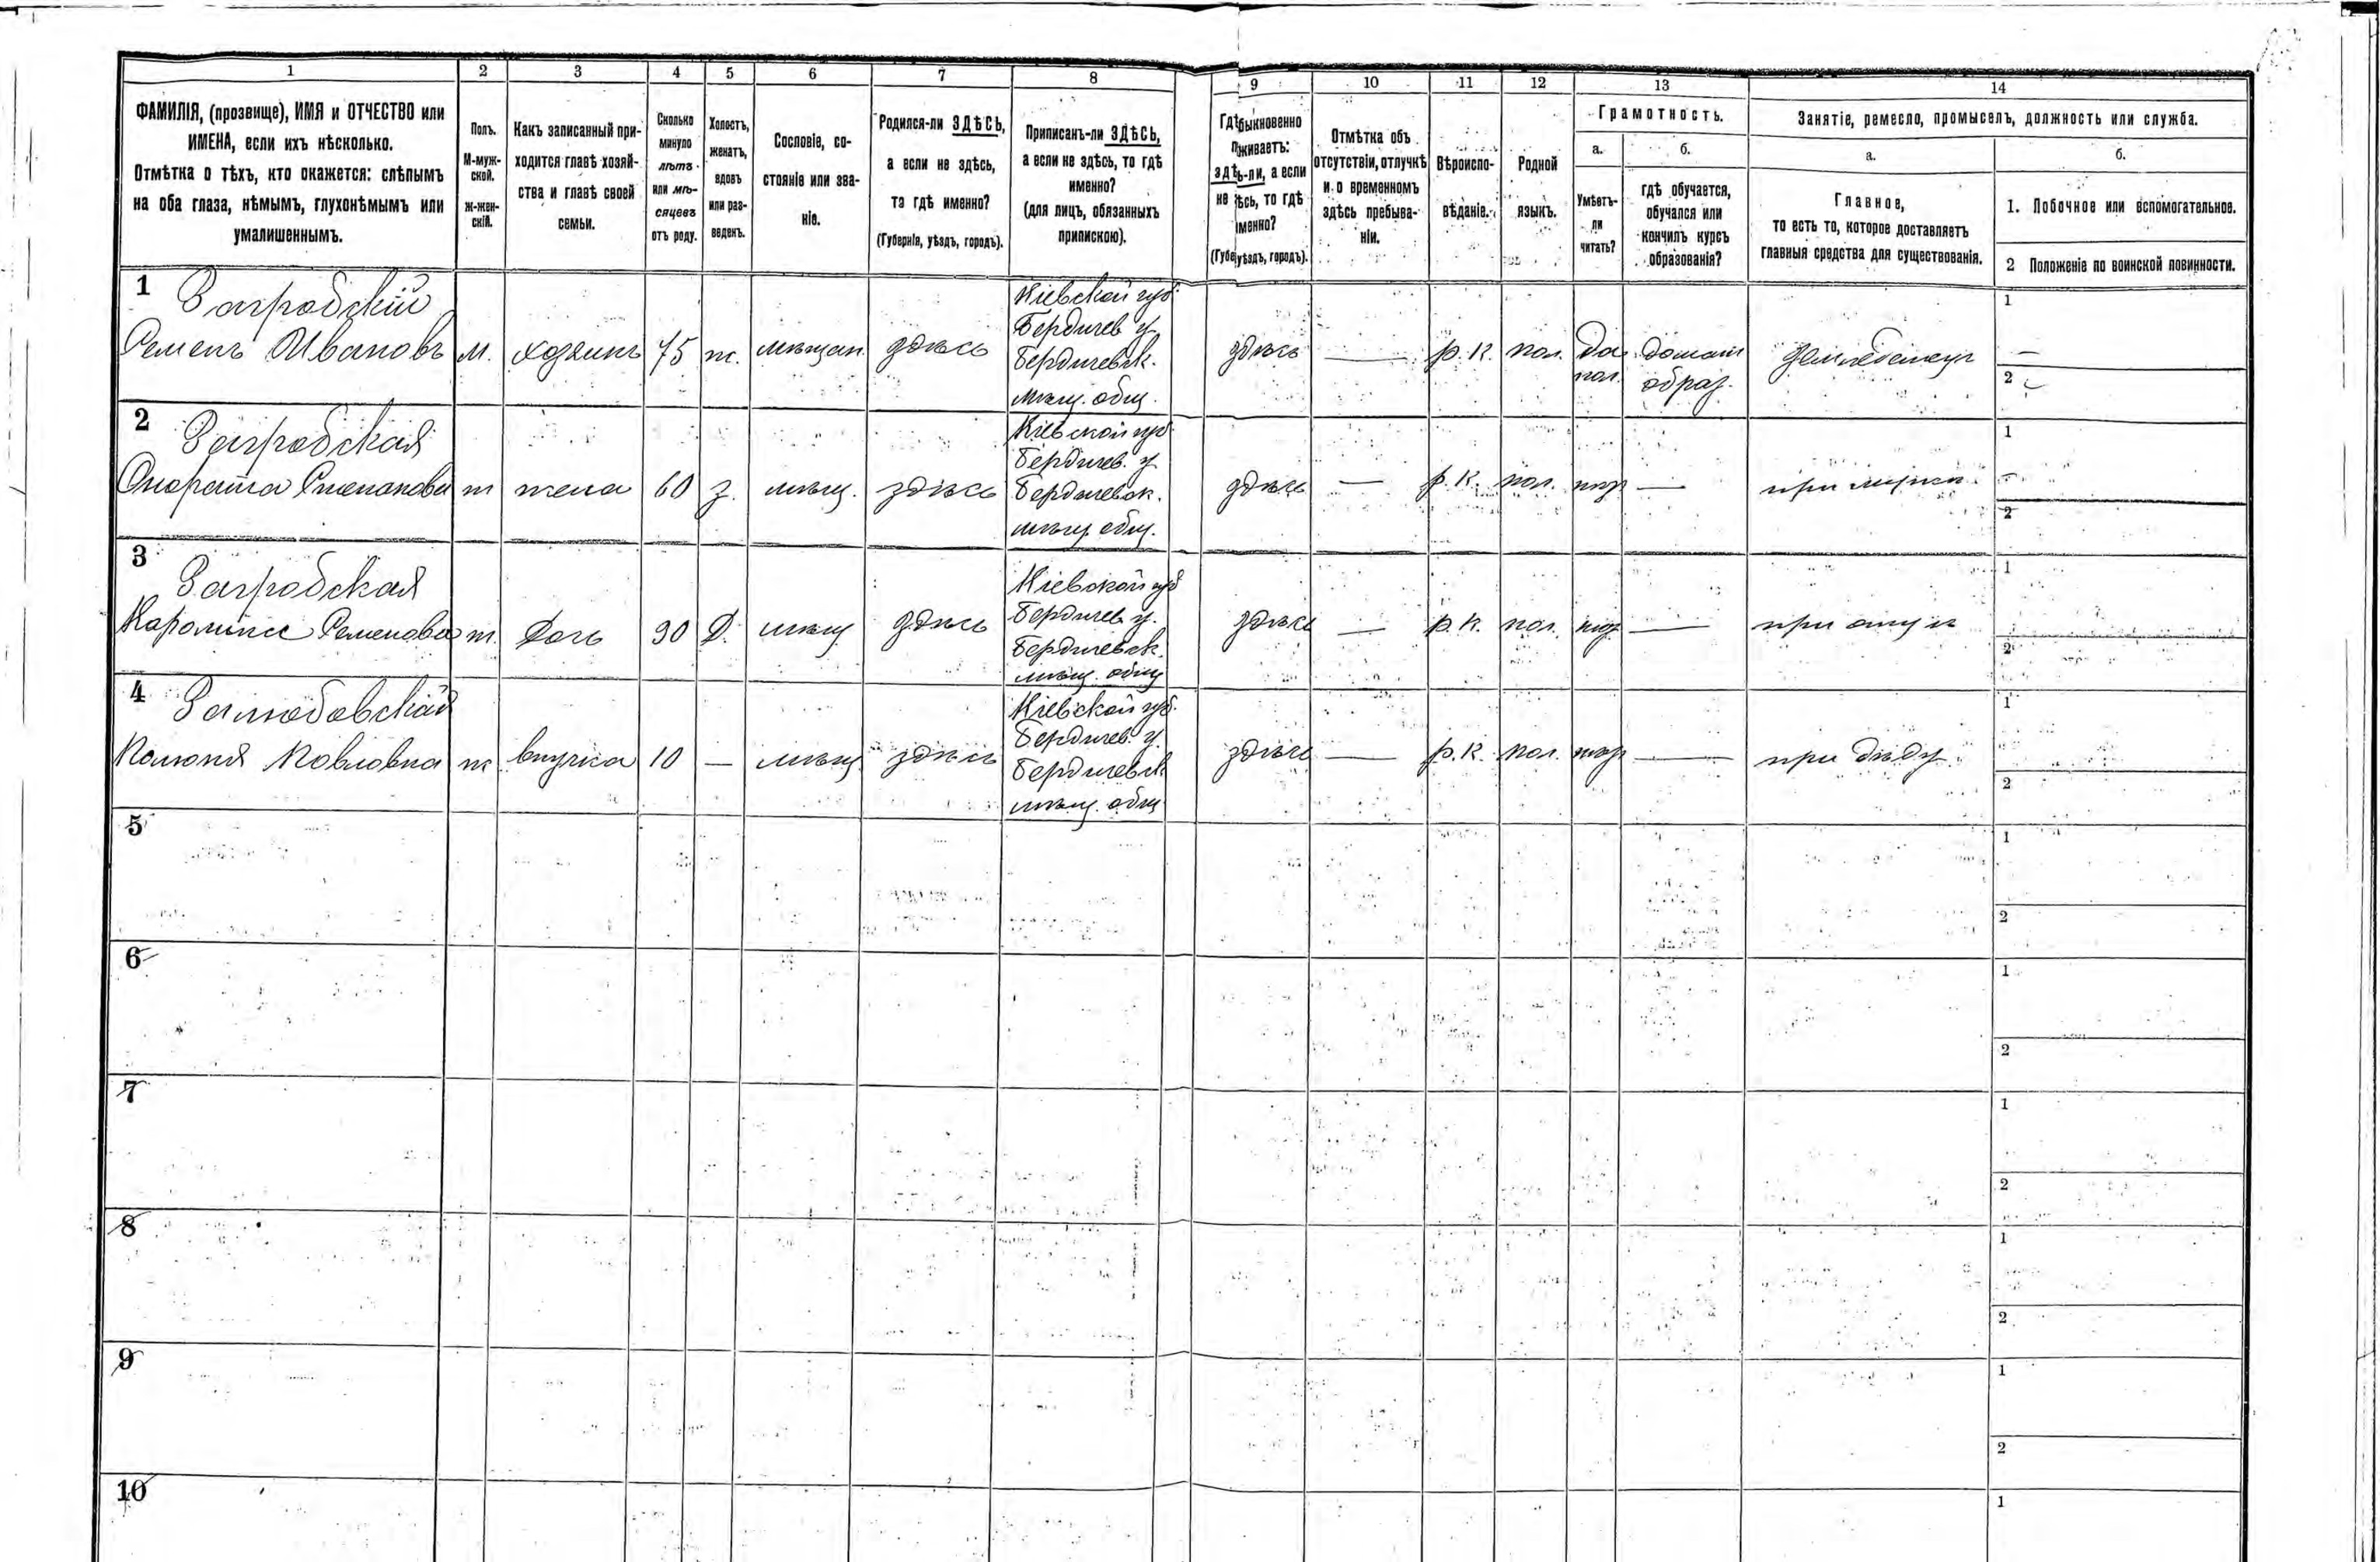 1 2 3 4 5 6 7 8 9 10 11 12 13 14
ФАМИЛІЯ, (прозвище), ИМЯ и ОТЧЕСТВО или
ИМЕНА, если ихъ нѣсколько.
Отмѣтка о тѣхъ, кто окажется: слѣпымъ
на оба глаза, нѣмымъ, глухонѣмымъ или
умалишеннымъ.
Полъ.
М-муж-
ской.
Ж-жен-
скій.
Какъ записанный при-
ходится главѣ хозяй-
ства и главѣ своей
семьи.
Сколько
минуло
лѣтъ
или мѣ-
сяцевъ
отъ роду.
Холостъ,
женатъ,
вдовъ
или раз-
веденъ.
Сословіе, со-
стояніе или зва-
ніе.
Родился-ли ЗДѢСЬ,
а если не здѣсь,
то гдѣ именно?
(Губернія, уѣздъ, городъ).
Приписанъ-ли ЗДѢСЬ,
а если не здѣсь, то гдѣ
именно?
(для лицъ, обязанныхъ
припискою).
Гдѣ быкновенно
пживаетъ:
здѣь-ли, а если
не ѣсь, то гдѣ
именно?
(Губе уѣздъ, городъ).
Отмѣтка объ
отсутствіи, отлучкѣ
и о временномъ
здѣсь пребыва-
ніи.
Вѣроиспо-
вѣданіе.
Родной
языкъ.
Грамотность.
а.
Умѣетъ-
ли
читать?
б.
гдѣ обучается,
обучался или
кончилъ курсъ
образованія?
Занятіе, ремесло, промыселъ, должность или служба.
а.
Главное,
то есть то, которое доставляетъ
главныя средства для существованія.
б.
1. Побочное или вспомогательное.
2 Положеніе по воинской повинности.
1 Загродскій
Семенъ Ивановъ м. хозяинъ 75 ж. мѣщан. здѣсь
Кіевской губ.
Бердичев у.
Бердичевск.
мѣщ. общ.
здѣсь — р.к. пол. Да пол. домаш образ.
1 —
2
2 Загродская
Онората Степанова ж жена 60 з. мѣщ. здѣсь
Кіевской губ
Бердичев. у
Бердичевск.
мѣщ. общ.
здѣсь — р.к. пол. —
при мужи
1
2
3 Загродская
Каролина Семенова ж. Дочь 30 Д. мѣщ здѣсь
Кіевской губ
Бердичев у.
Бердичевск.
мѣщ. общ
здѣсь — р.к. пол. —
при отцѣ
1
2
4
Павловна ж внучка 10 — мѣщ здѣсь
Кіевской губ.
Бердичев. у.
Бердичевск
мѣщ. общ
здѣсь — р.к. пол. —
при дѣду.
1
2
5
1
2
6
1
2
7
1
2
8
1
2
9
1
2
10
1